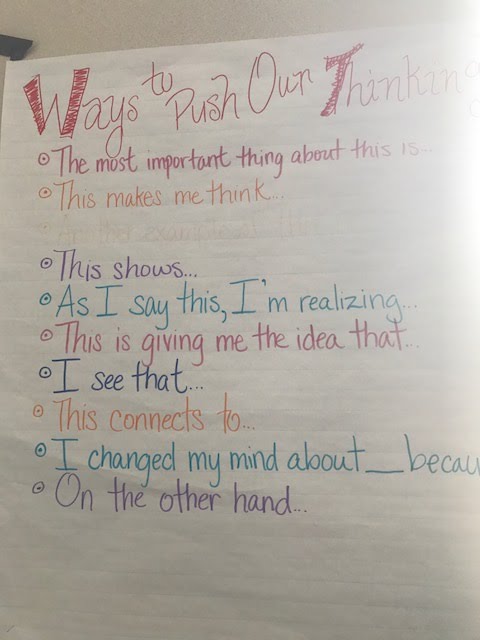 Ways to Push Our Thinking
The most important thing about this is...
This makes me think...
Another example of this
This shows...
As I say this, I'm realizing...
This is giving me the idea that...
I see that...
This connects to...
I changed my mind about__becau
On the other hand...